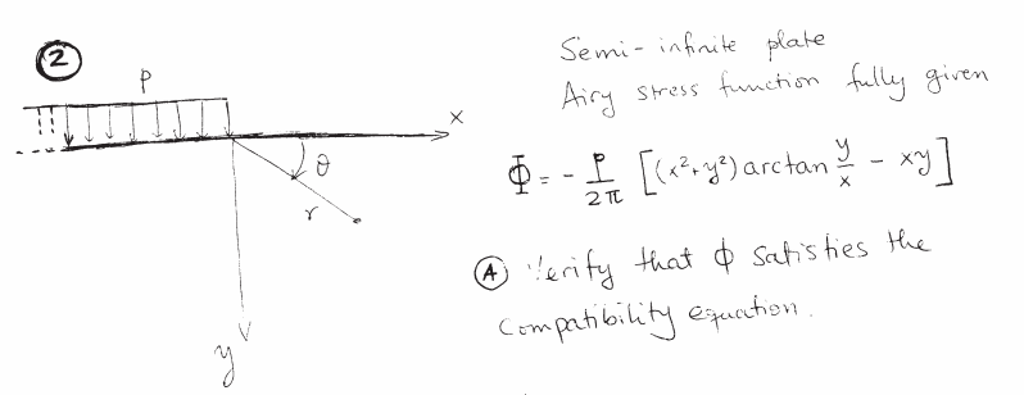 2
P
x
θ
r
y
Semi-infinite plate
Airy stress function fully given
Φ = - P/2π [(x²+y²) arctan y/x - xy]
A Verify that ϕ satisfies the
compatibility equation.